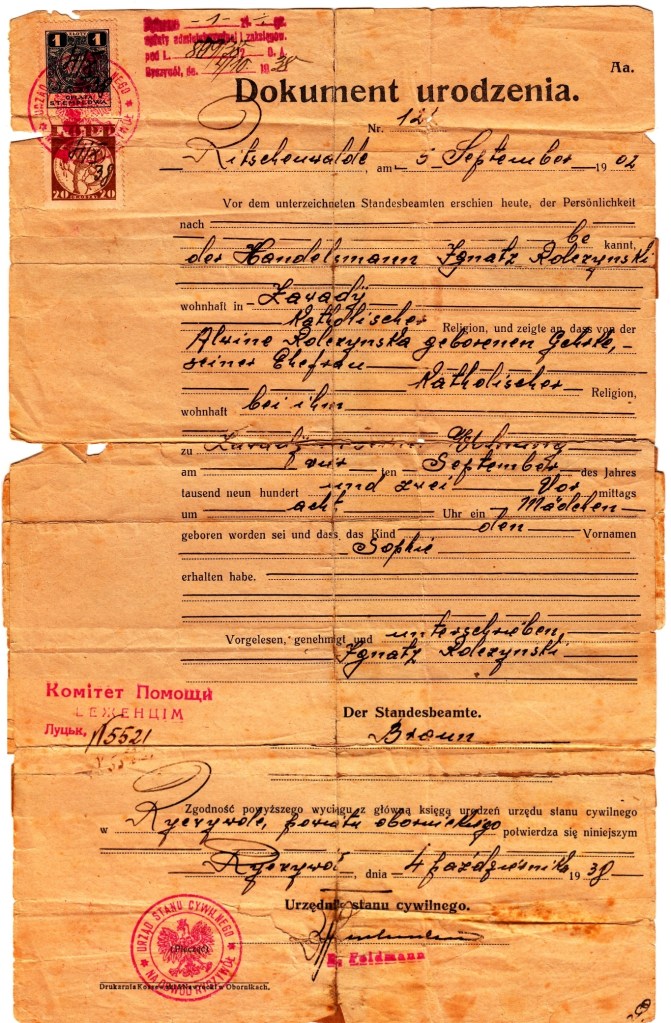 1 ZŁOTY 1
OPŁATA
STEMPLOWA
20 GROSZY 20
opłaty administracyjnej i zakupiono
pod l. 809/38 D. A.
Ryczywół, dn. 4/10 1938
Aa.
Dokument urodzenia.
Nr. 121
Ritschenwalde, am 5 September 1902
Vor dem unterzeichneten Standesbeamten erschien heute, der Persönlichkeit
nach be kannt,
der Handelsmann Ignatz Rolczynski
wohnhaft in Zawady
Katholischer Religion, und zeigte an, dass von der
Alwine Rolczynska geborenen Gehrke,
seiner Ehefrau
Katholischer Religion,
wohnhaft bei ihm
zu Zawady seiner Wohnung
am vier ten September des Jahres
tausend neun hundert und zwei Vor mittags
um acht Uhr ein Mädchen
geboren worden sei und dass das Kind den Vornamen
Sophie
erhalten habe.
Vorgelesen, genehmigt und unterschrieben,
Ignatz Rolczynski
Комітет Помощи
БЕЖЕНЦІМ
Луцьк. 15521
Der Standesbeamte.
Braun
Zgodność powyższego wyciągu z główną księgą urodzeń urzędu stanu cywilnego
w Ryczywole, powiatu obornickiego potwierdza się niniejszym
Ryczywół, dnia 4 października 1938
Urzędnik stanu cywilnego.
URZĄD STANU CYWILNEGO
NA OBWÓD RYCZYWÓŁ
(Pieczęć)
E. Feldmann
Drukarnia Kozewski i Nawrocki w Obornikach.